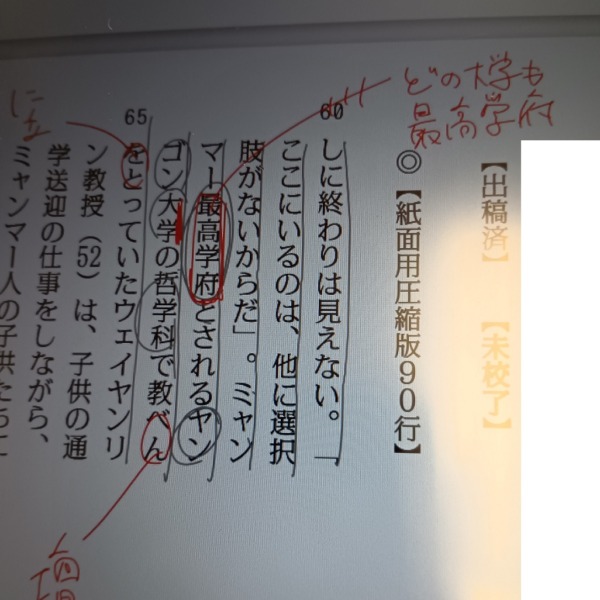 【出稿済】【未校了】
どの大学も
最高学府
◎【紙面用圧縮版90行】
60
しに終わりは見えない。「
ここにいるのは、他に選択
肢がないからだ」。ミャン
マー最高学府とされるヤン
ゴン大学の哲学科で教べん
65
をとっていたウェイヤンリ
ン教授（52）は、子供の通
学送迎の仕事をしながら、
ミャンマー人の子供たちに
に立